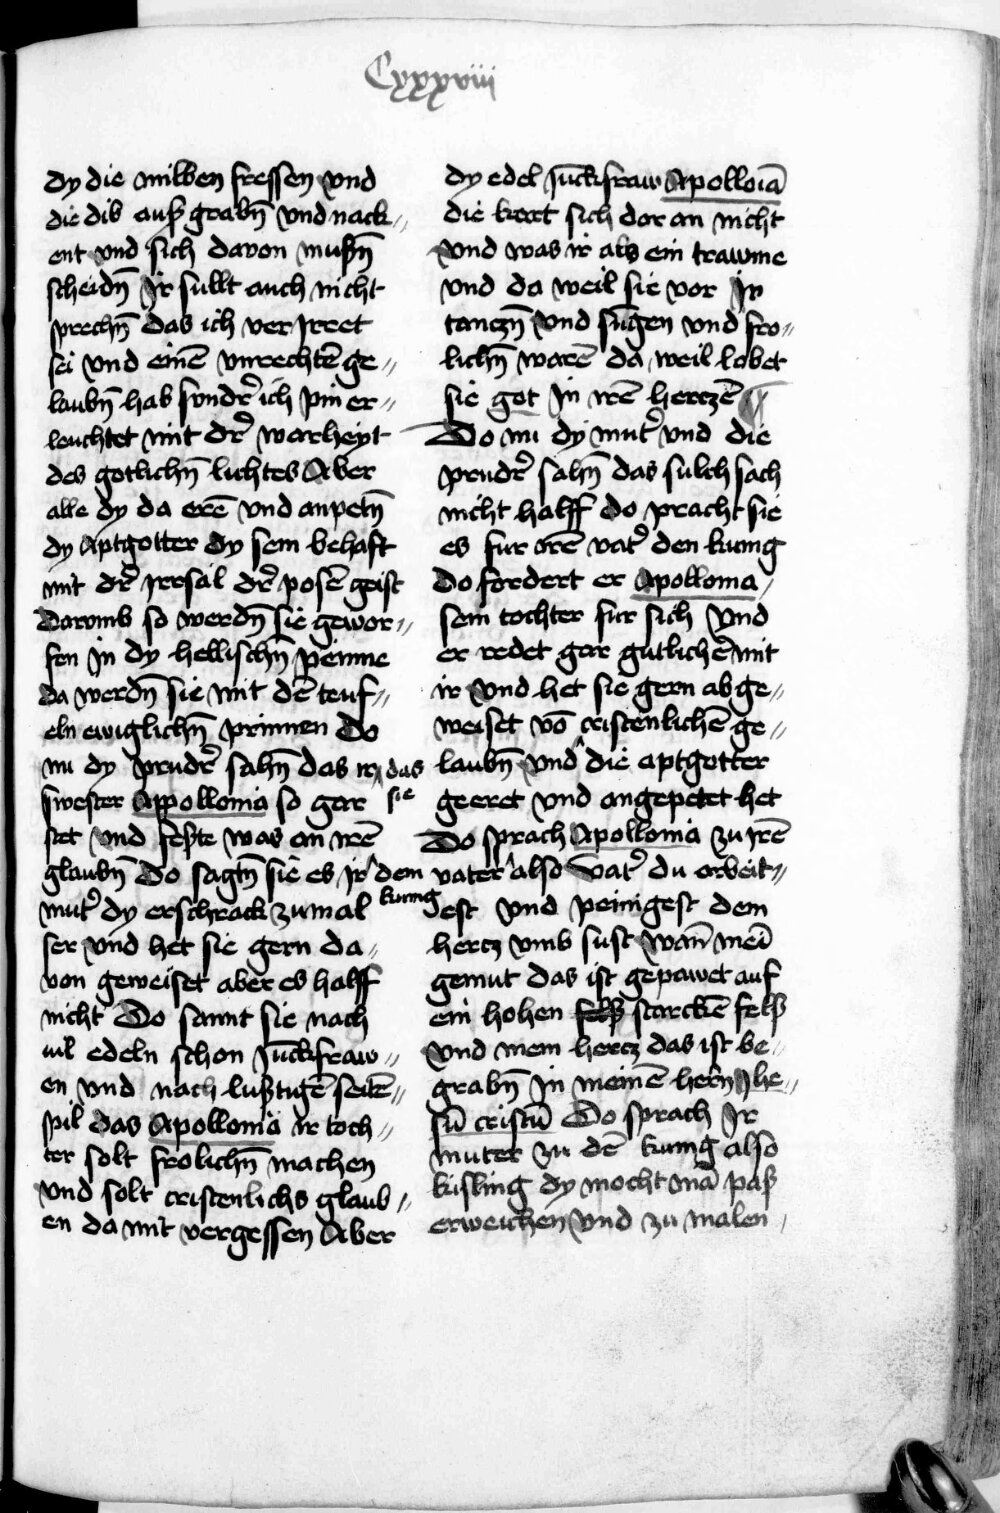 Cxxxviii
dy die milben fressen vnd
die dib auß grabn̄ vnd nack⸗
ent vnd sich dauon mußn̄
scheidn̄ Ir sullt auch nicht
sprechn̄ das ich ver Irret
sei vnd einē vnrechtē ge⸗
laubn̄ hab sundr̄ ich pin er⸗
leuchtet mit dr̄ warheyt
des gotlichn̄ lichtes Aber
alle dy da erē vnd anpetn̄
dy Aptgotter dy sein behaft
mit dr̄ Irrsal dr̄ posē geist
Darvmb so werdn̄ sie gewor⸗
fen In dy hellischn̄ peinne
da werdn̄ sie mit dē teuf⸗
eln ewiglichn̄ prinnen Do
nu dy prudr̄ sahn̄ das ir das
swester Appollonia so gar sie
stet vnd feste was an irē
glaubn̄ Do sagtn̄ sie es Ir dem
mut̄ dy erschrack zumal kunig
ser vnd het sie gern da⸗
von geweiset aber es halff
nicht Do sannt sie nach
vil edeln schon Iūckfraw⸗
en vnd nach lußtigē seitē⸗
spil das Apollonia ir toch⸗
ter solt frolichn̄ machen
vnd solt cristenlichs glaub⸗
en da mit vergessen Aber
dy edel Iūckfraw Apolloīa
die keret sich dar an nicht
vnd was ir als ein trawme
vnd da weil sie vor Ir
tanczn̄ vnd sūgen vnd fro⸗
lichn̄ warē da weil lobet
sie got In irē herczē
Do nu dy mut̄ vnd die
prudr̄ sahn̄ das sulch sach
nicht halff do pracht sie
es fur irē vat̄ den kunig
Do fordert er Apollonia
sein tochter fur sich vnd
er redet gar gutlichē mit
ir vnd het sie gern abge⸗
weiset vō cristenlichē ge⸗
laubn̄ vnd die aptgotter
geeret vnd angepetet het
Do sprach Apollonia zu Irē
vater also vat̄ du erbeit⸗
est vnd peinigest dein
hercz vmb sust wan̄ meī
gemut das ist gepawet auf
ein hohen felß starckē felß
vnd mein hercz das ist be⸗
grabn̄ In meinē hern̄ Ihe⸗
sū cristū Do sprach Ir
muter zu dē kunig also
kisling dy mocht mā paß
erweichen vnd zu malen